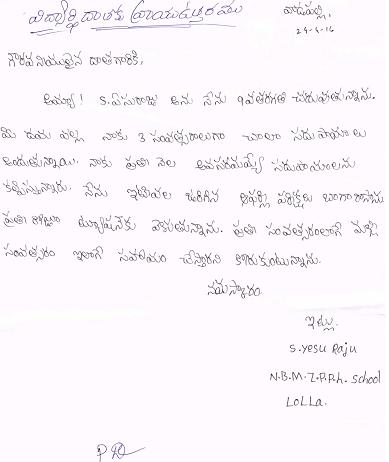 విద్యార్థి దాతకు వ్రాయు ఉత్తరము
వాడపల్లి,
29-4-16
గౌరవనీయులైన దాతగారికి,
అయ్యా! S. ఏసురాజు అను నేను 9వతరగతి చదువుతున్నాను.
మీ దయ వల్ల నాకు 3 సంవత్సరాలుగా చాలా సదుపాయాలు
అందుతున్నాయి. నాకు ప్రతి నెల అవసరమయ్యే సదుపాయాలను
కల్పిస్తున్నారు. నేను ఇటీవల జరిగిన పరీక్షలు బాగా రాసాను
ప్రతి రోజూ ట్యూషన్‌కు వెళుతున్నాను. ప్రతి సంవత్సరంలాగే
సంవత్సరం ఇలాగే సహాయం చేస్తారని కోరుకుంటున్నాను.
నమస్కారం.
ఇట్లు.
S. Yesu Raju
N.B.M.Z.P.P.h. School
LOLLa.